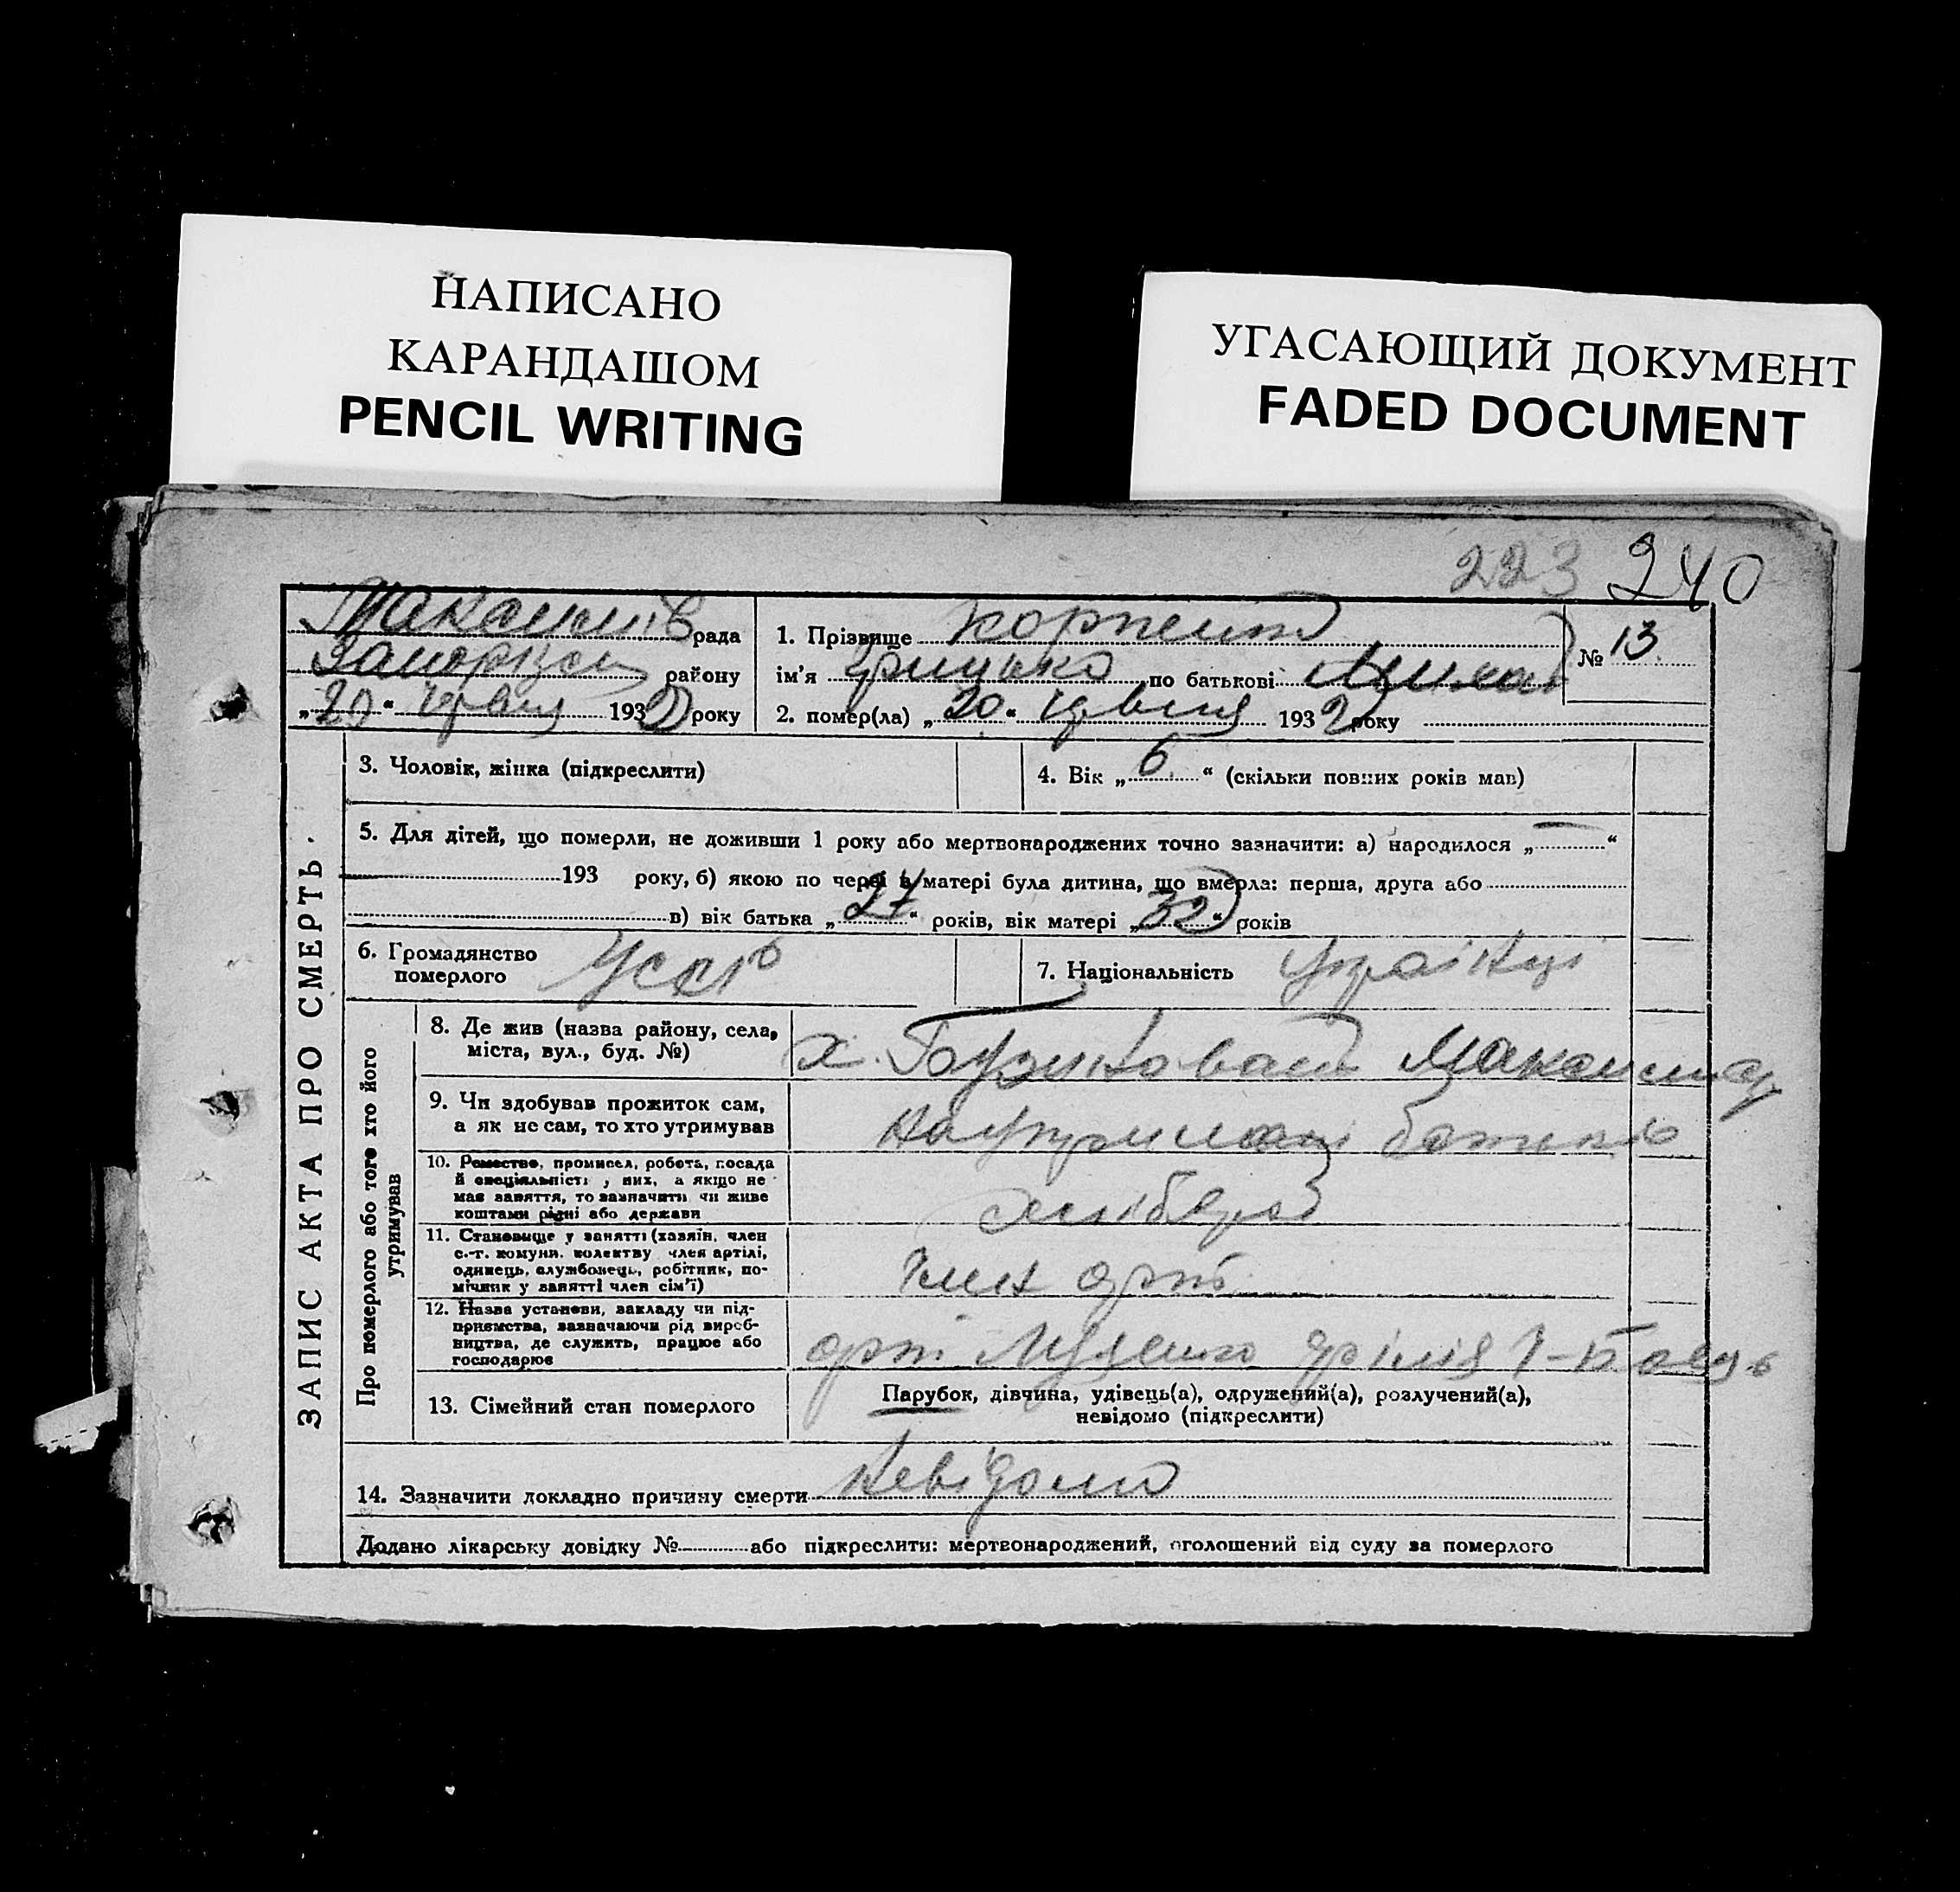 НАПИСАНО
КАРАНДАШОМ
PENCIL WRITING
УГАСАЮЩИЙ ДОКУМЕНТ
FADED DOCUMENT
223 240
рада
району
„20“ червня 1932 року
1. Прізвище
№ 13.
ім'я Грицько по батькові
2. помер(ла) „20“ червня 1932 року
ЗАПИС АКТА ПРО СМЕРТЬ.
3. Чоловік, жінка (підкреслити)
4. Вік „6“ (скільки повних років мав)
5. Для дітей, що померли, не доживши 1 року або мертвонароджених точно зазначити: а) народилося „—“
193 року, б) якою по черзі в матері була дитина, що вмерла: перша, друга або
в) вік батька „27“ років, вік матері „32“ років
6. Громадянство
померлого
УССР
7. Національність
Українці
Про померлого або того хто його
утримував
8. Де жив (назва району, села,
міста, вул., буд. №)
х.
9. Чи здобував прожиток сам,
а як не сам, то хто утримував
на утриманні батьків
10. Ремество, промисел, робота, посада
й спеціяльність у них, а якщо не
має заняття, то зазначити чи живе
коштами рідні або держави
хлібороб
11. Становище у занятті (хазяїн, член
с.-г. комуни, колективу, член артілі,
одинець, службовець, робітник, по-
мічник у занятті член сім'ї)
член арт.
12. Назва установи, закладу чи під-
приємства, зазначаючи рід вироб-
ництва, де служить, працює або
господарює
арт.
13. Сімейний стан померлого
Парубок, дівчина, удівець(а), одружений(а), розлучений(а),
невідомо (підкреслити)
14. Зазначити докладно причину смерти невідомо
Додано лікарську довідку № або підкреслити: мертвонароджений, оголошений від суду за померлого